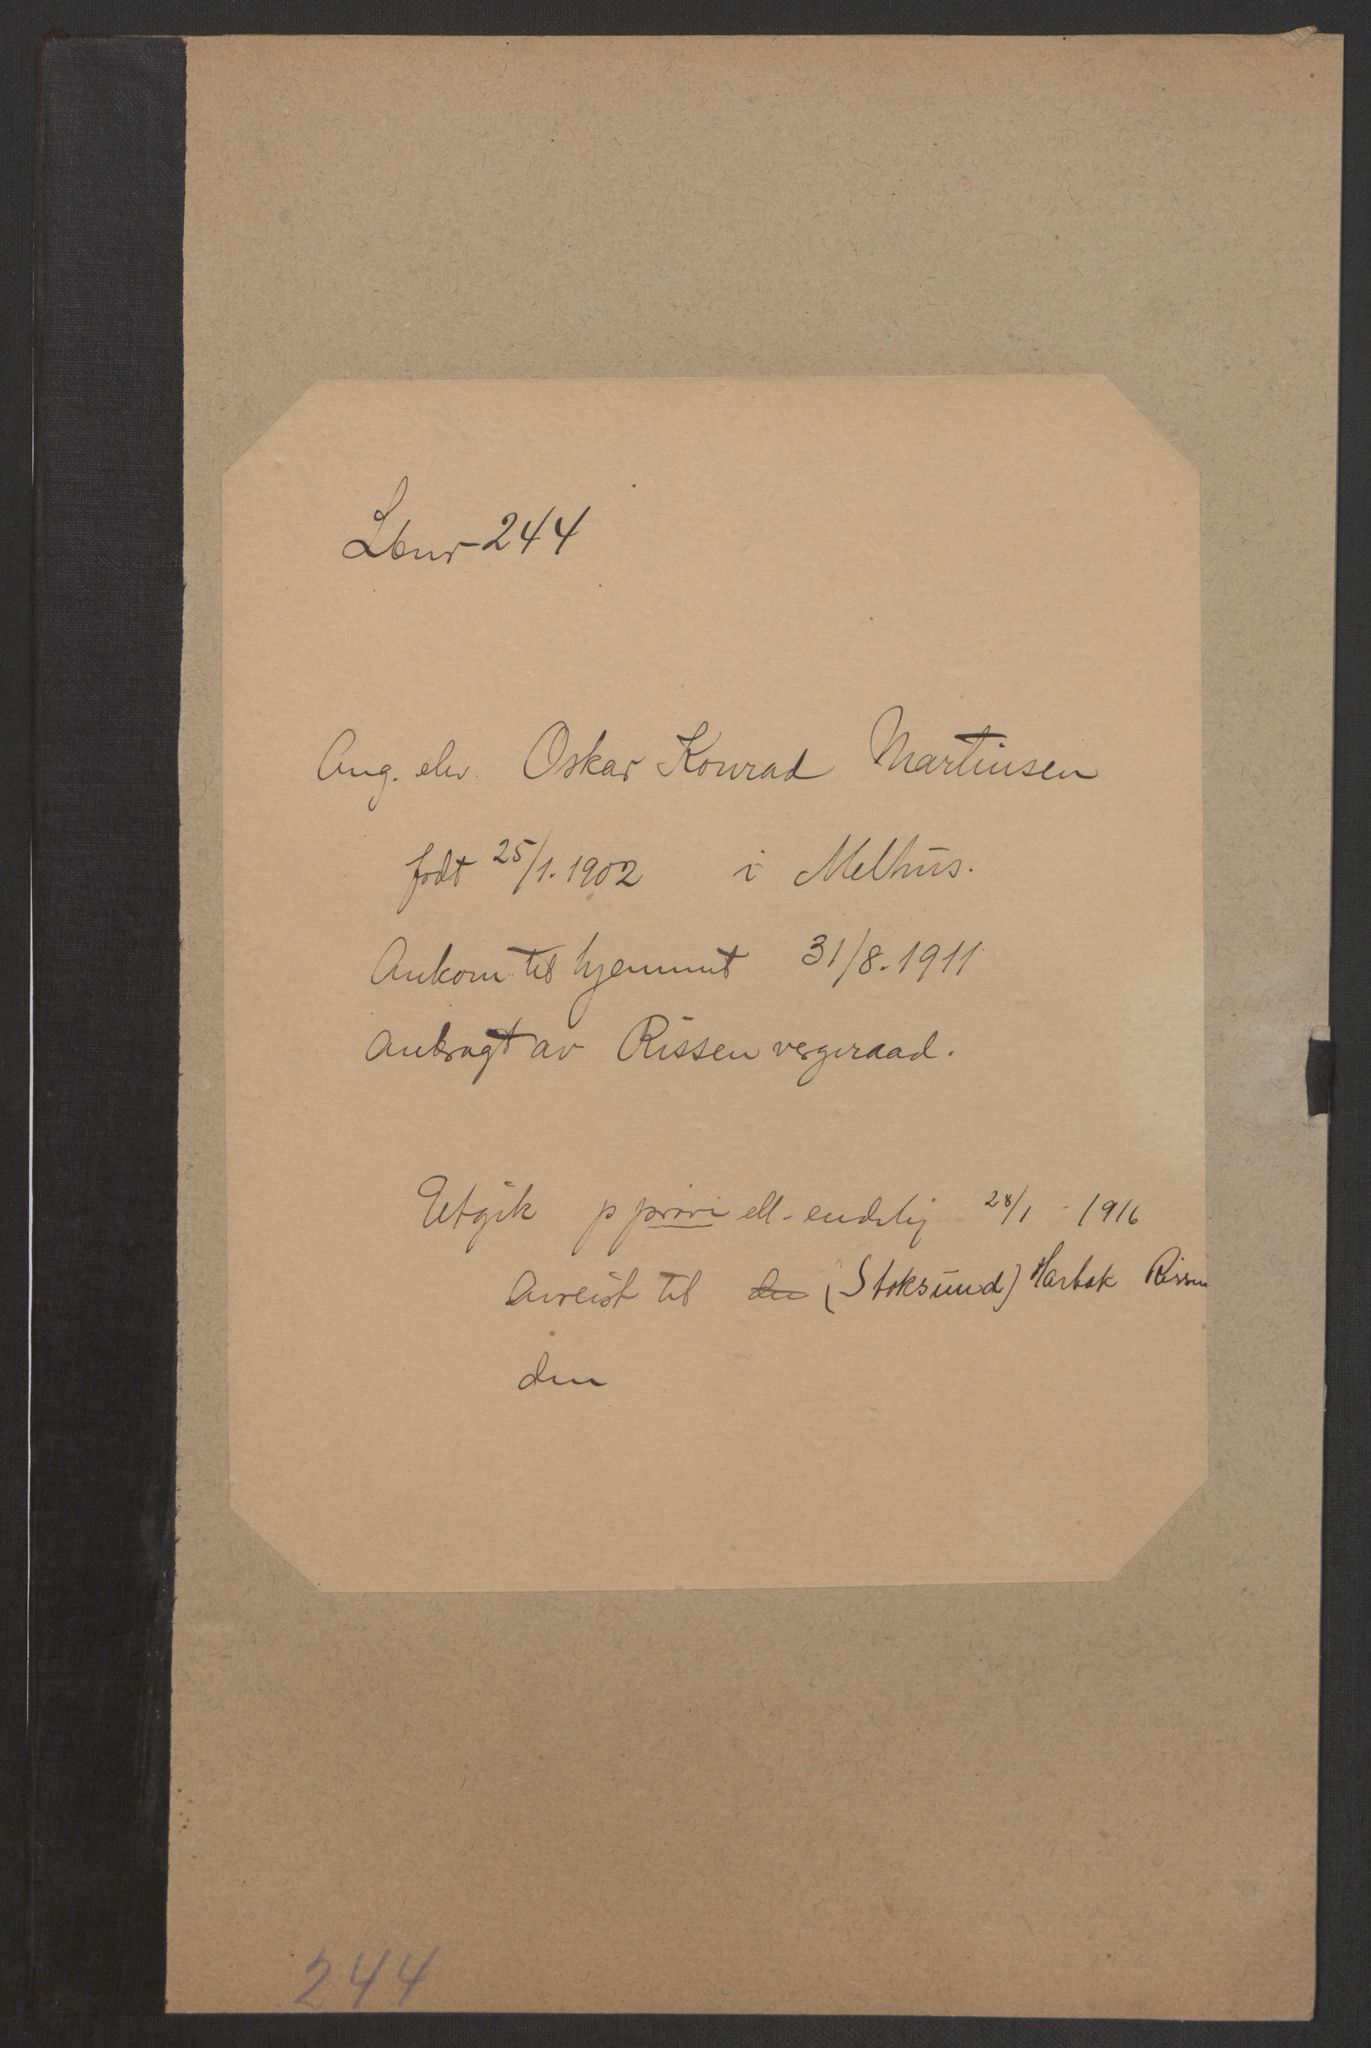 Lbnr 244
Ang. elev. Oskar Konrad Martinsen
født 25/1. 1902 i Melhus.
Ankom til hjemmet 31/8. 1911
Anbragt av Rissen vergeraad.
Utgik p prøve ell. endelig 28/1 - 1916
Avreist til den (Stoksund) Harbak Rissen
den
244